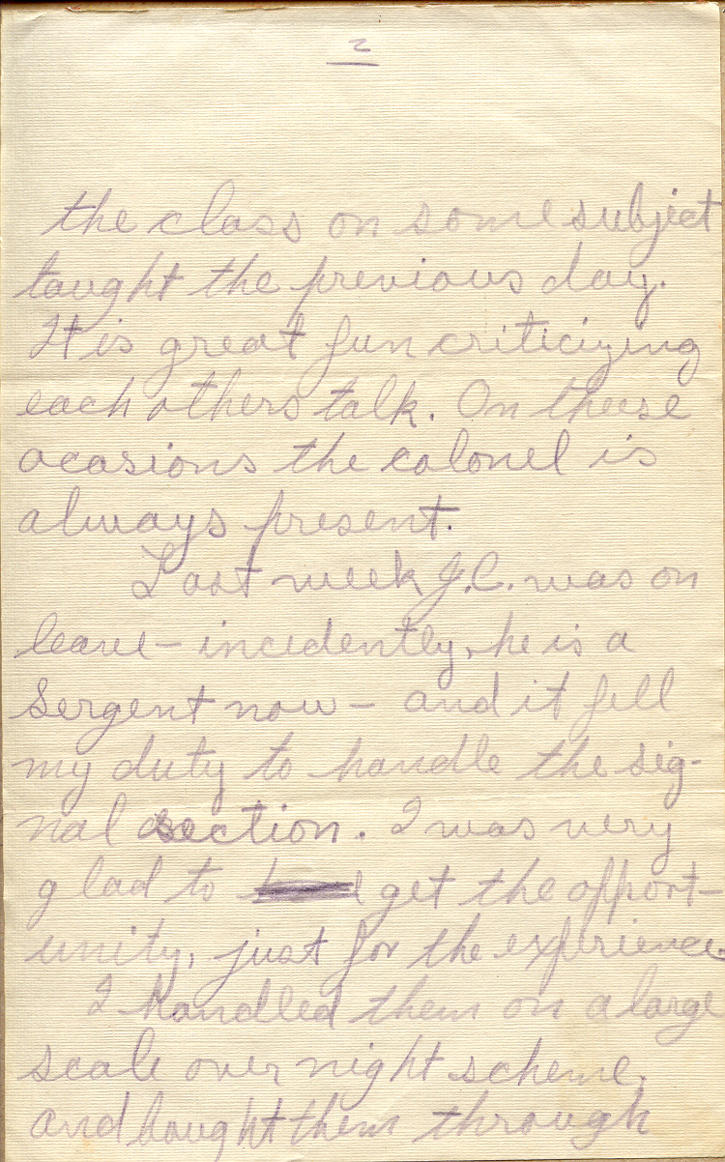 2
the class on some subject
taught the previous day.
It is great fun criticizing
each others talk. On these
ocasions the colonel is
always present.
Last week J.C. was on
leave - incidently, he is a
Sergent now - and it fell
my duty to handle the sig-
nal section. I was very
glad to get the opport-
unity, just for the experience.
I handled them on a large
scale over night scheme,
and bought them through